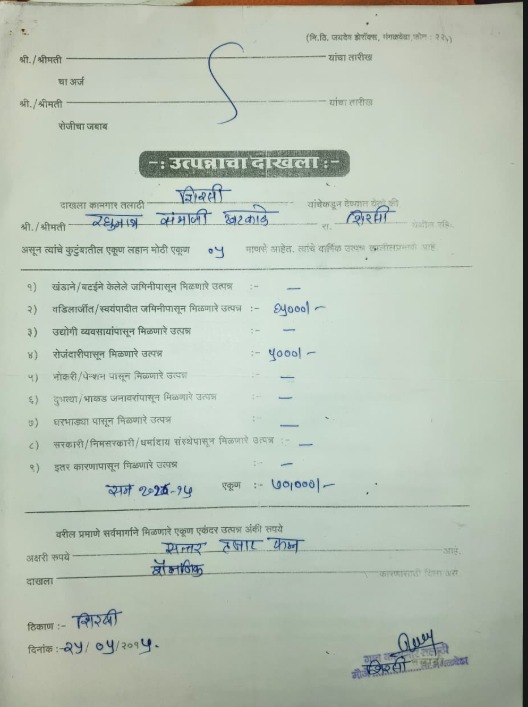 (नि.वि. जयदेव झेरॉक्स, मंगळवेढा.फोन : २२५)
श्री./श्रीमती यांचा तारीख
चा अर्ज
श्री./श्रीमती यांचा तारीख
रोजीचा जबाब
-: उत्पन्नाचा दाखला :-
दाखला कामगार तलाठी शिरसी यांचेकडून देण्यात येतो की
श्री./श्रीमती रघुनाथ संभाजी खटकाळे रा. शिरसी येथील रहि.
असून त्यांचे कुटुंबातील एकूण लहान मोठी एकूण ०५ माणसे आहेत. त्यांचे वार्षिक उत्पन्न खालीलप्रमाणे आहे
१) खंडाने/बटईने केलेले जमिनीपासून मिळणारे उत्पन्न :- —
२) वडिलार्जीत/स्वयंपादीत जमिनीपासून मिळणारे उत्पन्न :- ६५०००/-
३) उद्योगी व्यवसायांपासून मिळणारे उत्पन्न :- —
४) रोजंदारीपासून मिळणारे उत्पन्न :- ५०००/-
५) नोकरी/पेन्शन पासून मिळणारे उत्पन्न :- —
६) दुभत्या/भाकड जनावरांपासून मिळणारे उत्पन्न :- —
७) घरभाड्या पासून मिळणारे उत्पन्न :- —
८) सरकारी/निमसरकारी/धर्मादाय संस्थेपासून मिळणारे उत्पन्न :- —
९) इतर कारणापासून मिळणारे उत्पन्न :- —
सन २०१४-१५ एकूण :- ७०,०००/-
वरील प्रमाणे सर्वमार्गाने मिळणारे एकूण एकंदर उत्पन्न अंकी रुपये
अक्षरी रुपये सत्तर हजार फक्त आहे.
दाखला शैक्षणिक कारणासाठी दिला असे
ठिकाण :- शिरसी
दिनांक :- २५/ ०५/२०१५.
शिरसी